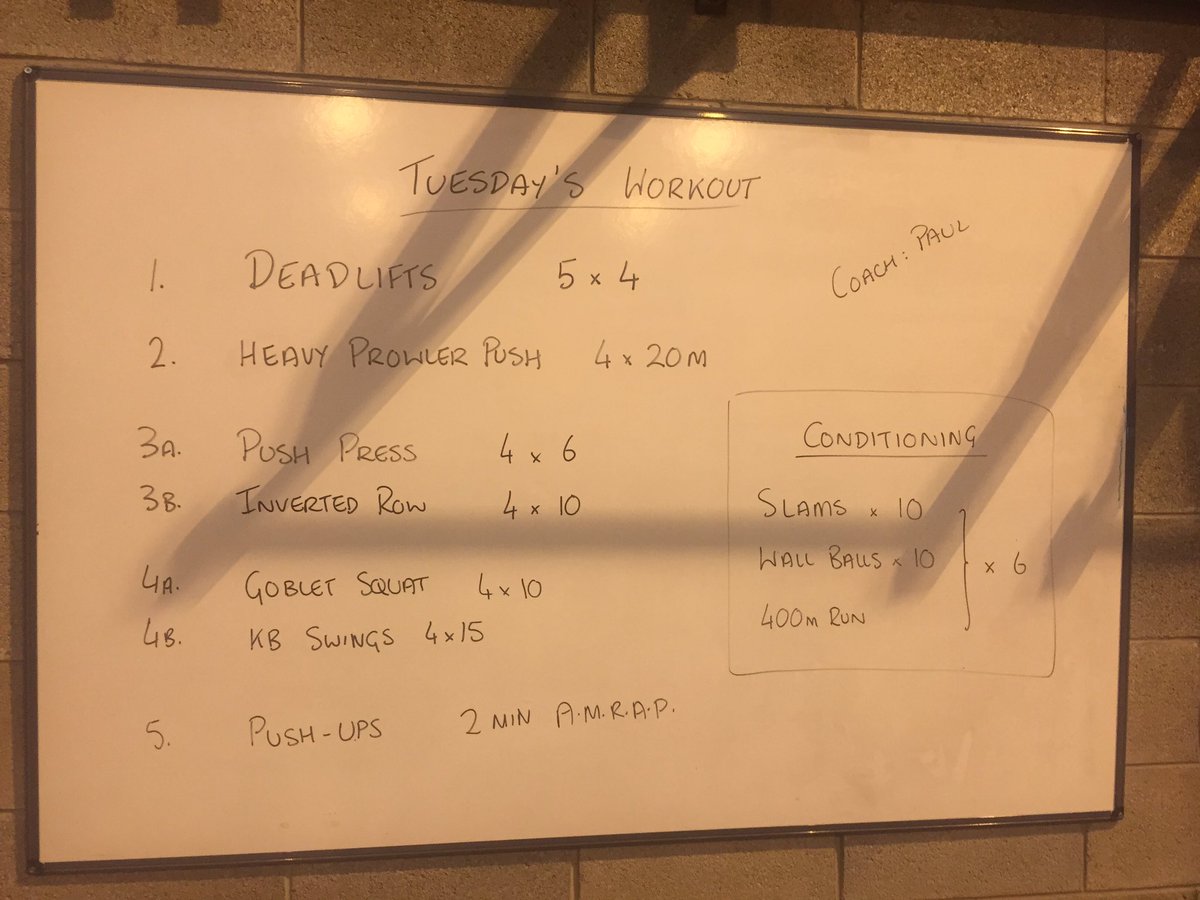 TUESDAY'S WORKOUT
COACH: PAUL
1. DEADLIFTS 5 x 4
2. HEAVY PROWLER PUSH 4 x 20M
3A. PUSH PRESS 4 x 6
3B. INVERTED ROW 4 x 10
4A. GOBLET SQUAT 4 x 10
4B. KB SWINGS 4 x 15
5. PUSH-UPS 2 MIN A.M.R.A.P.
CONDITIONING
SLAMS x 10
WALL BALLS x 10
400M RUN
x 6